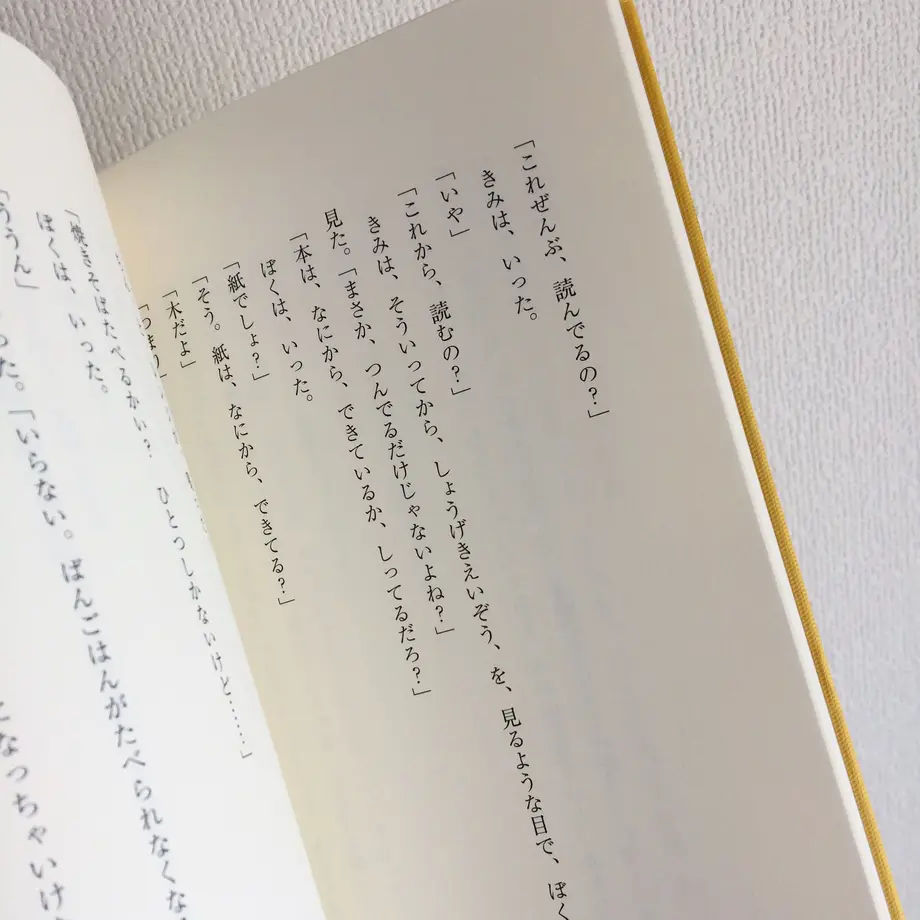 「これぜんぶ、読んでるの？」
きみは、いった。
「いや」
「これから、読むの？」
きみは、そういってから、しょうげきえいぞう、を、見るような目で、ぼく
見た。「まさか、つんでるだけじゃないよね？」
「本は、なにから、できているか、しってるだろ？」
ぼくは、いった。
「紙でしょ？」
「そう。紙は、なにから、できてる？」
「木だよ」
「つまり」
ひとつしかないけど……」
「焼きそばたべるかい？
ぼくは、いった。
「ううん」
った。「いらない。ばんごはんがたべられなくな
になっちゃいけ